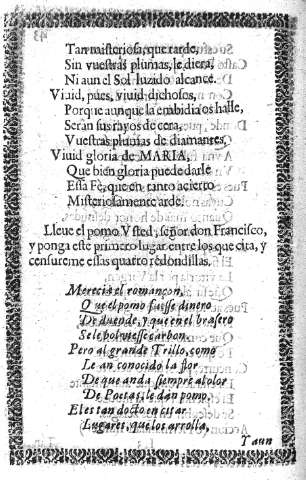 Tan misteriosa, que tarde,
Sin vuestras plumas, le diera,
Ni aun el Sol luzido alcance.
Viuid, pues, viuid dichosos,
Porque aunque la embidia os halle,
Serán sus rayos de cera,
Vuestras plumas de diamantes,
Viuid gloria de MARIA,
Que bien gloria puede darle
Essa Fè, que en tanto acierto
Misteriosamente arde.
Lleue el pomo Vsted, señor don Francisco,
y ponga este primero lugar entre los que cita, y
censureme essas quatro redondillas.
Merecia el romançon,
Que el pomo fuesse dinero
De duende, y que en el brasero
Se le boluiesse carbon.
Pero al grande Trillo, como
Le an conocido la flor
De que anda siempre al olor
De Poetas, le dan pomo.
El es tan docto en citar
Lugares, que los arrolla,
Y aun